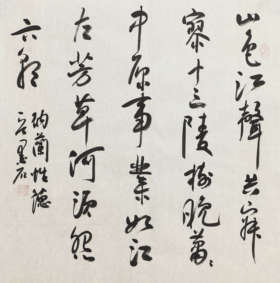 山色江聲共寂
寥十三陵樹晚蕭〻
中原事業如江
左芳草何須怨
六朝
納蘭性德